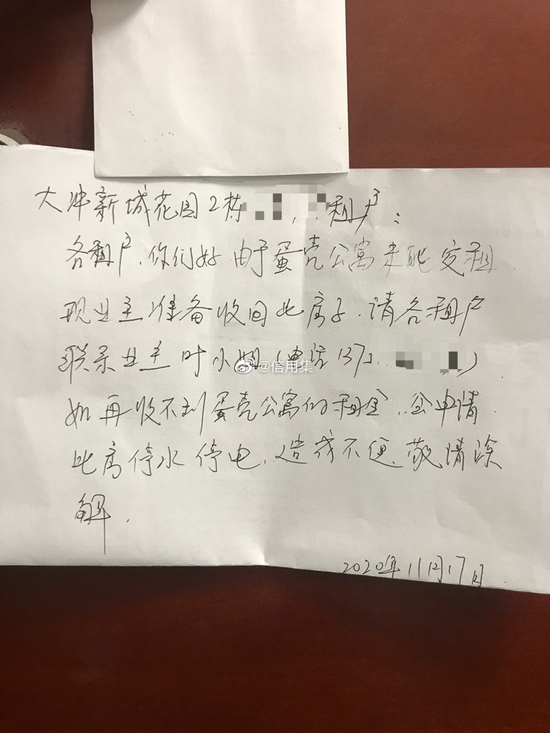 大冲新城花园2栋 租户:
各租户,你们好 由于蛋壳公寓未能交租
现业主准备收回此房子,请各租户
联系业主叶小姐(电话137 )
@信用集
如再收不到蛋壳公寓的租金,会申请
此房停水停电,造成不便,敬请谅
解.
2020年11月17日